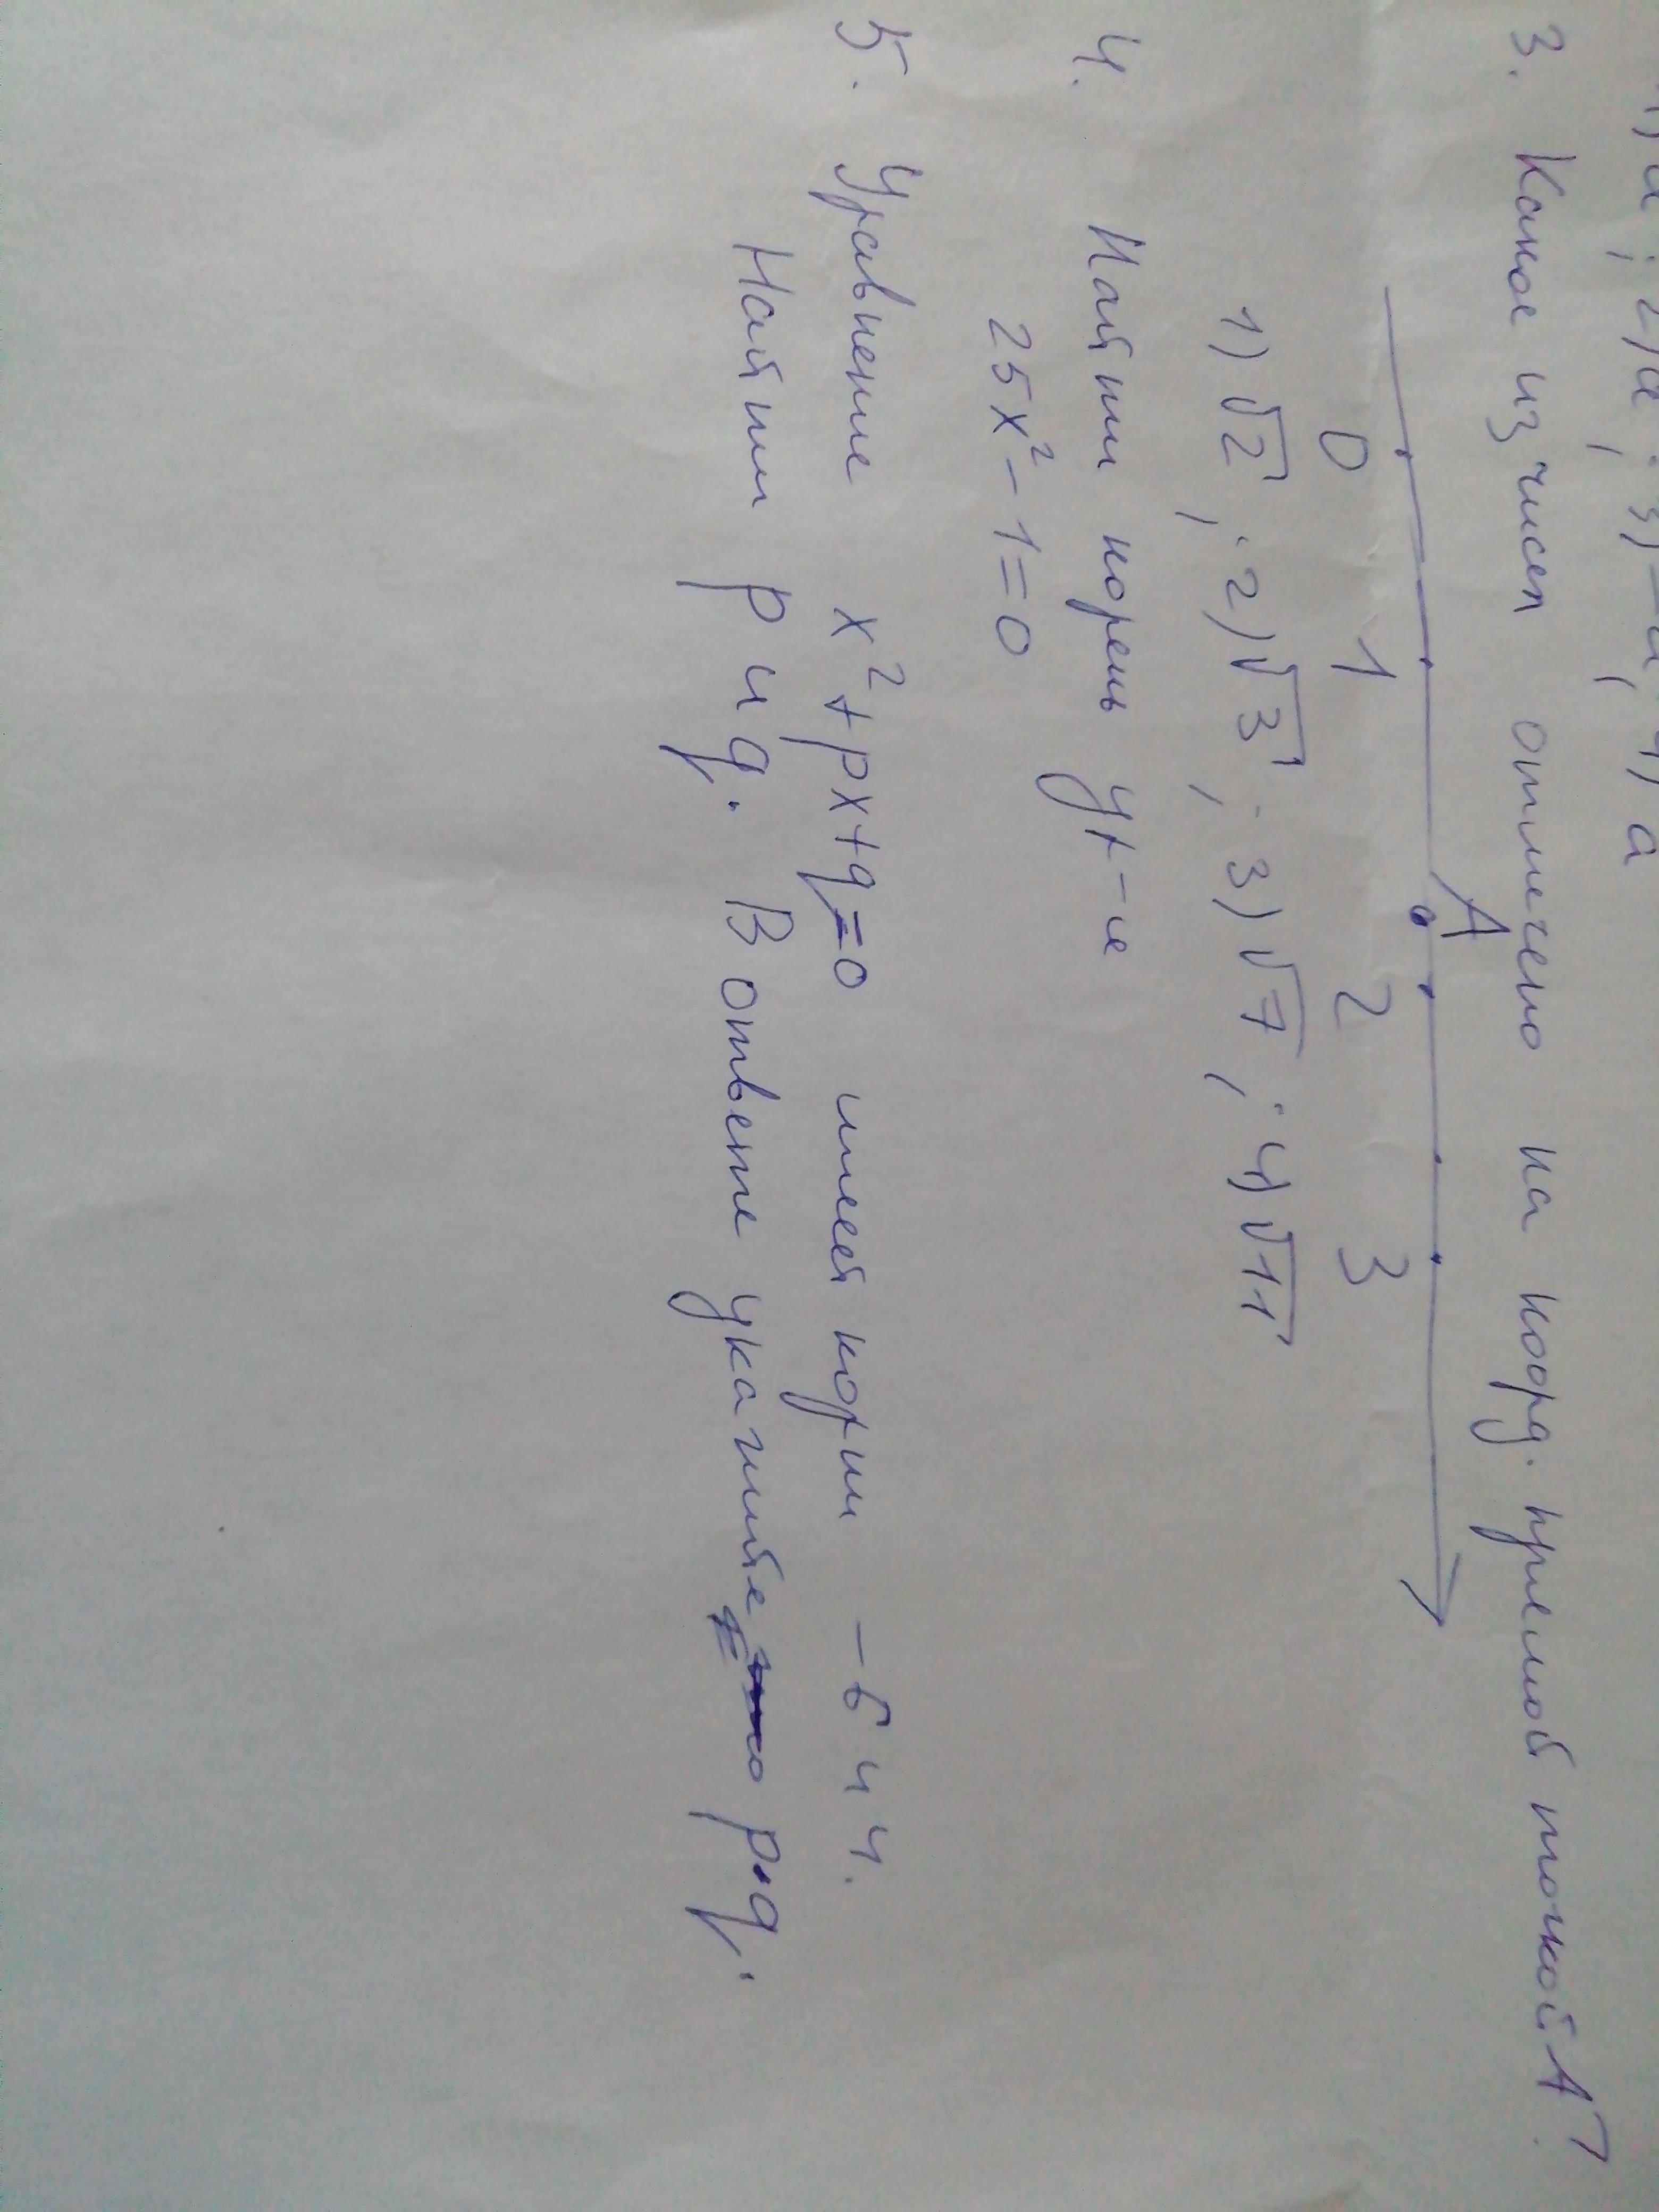 3. Какое из чисел отмечено на коорд. прямой точкой А?
А
0 1 2 3
1) √2; 2) √3; 3) √7; 4) √11
4. Найти корень ур-я
25x² - 1 = 0
5. Уравнение x² + px + q = 0 имеет корни -6 и 4.
Найти p и q. В ответе укажите p·q.